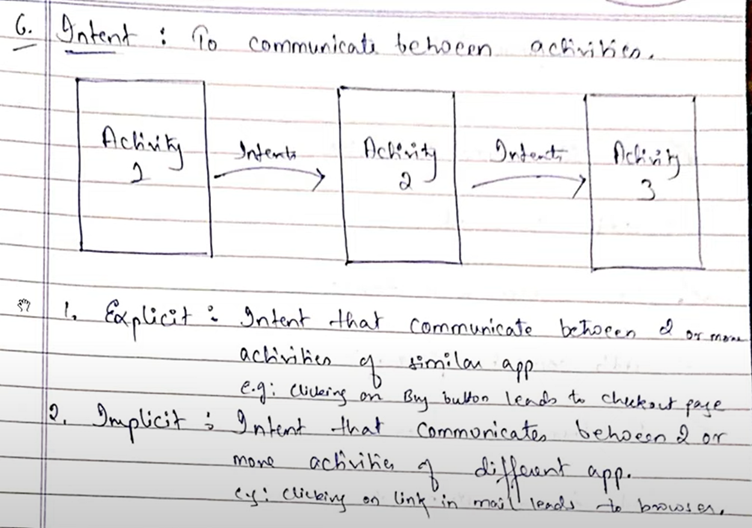 6. Intent : To communicate between activities.
Activity 1
Intents
Activity 2
Intents
Activity 3
1. Explicit : Intent that communicate between 2 or more
activities of similar app
e.g: clicking on Buy button leads to checkout page
2. Implicit : Intent that communicates between 2 or
more activities of different app.
e.g: clicking on link in mail leads to browser.